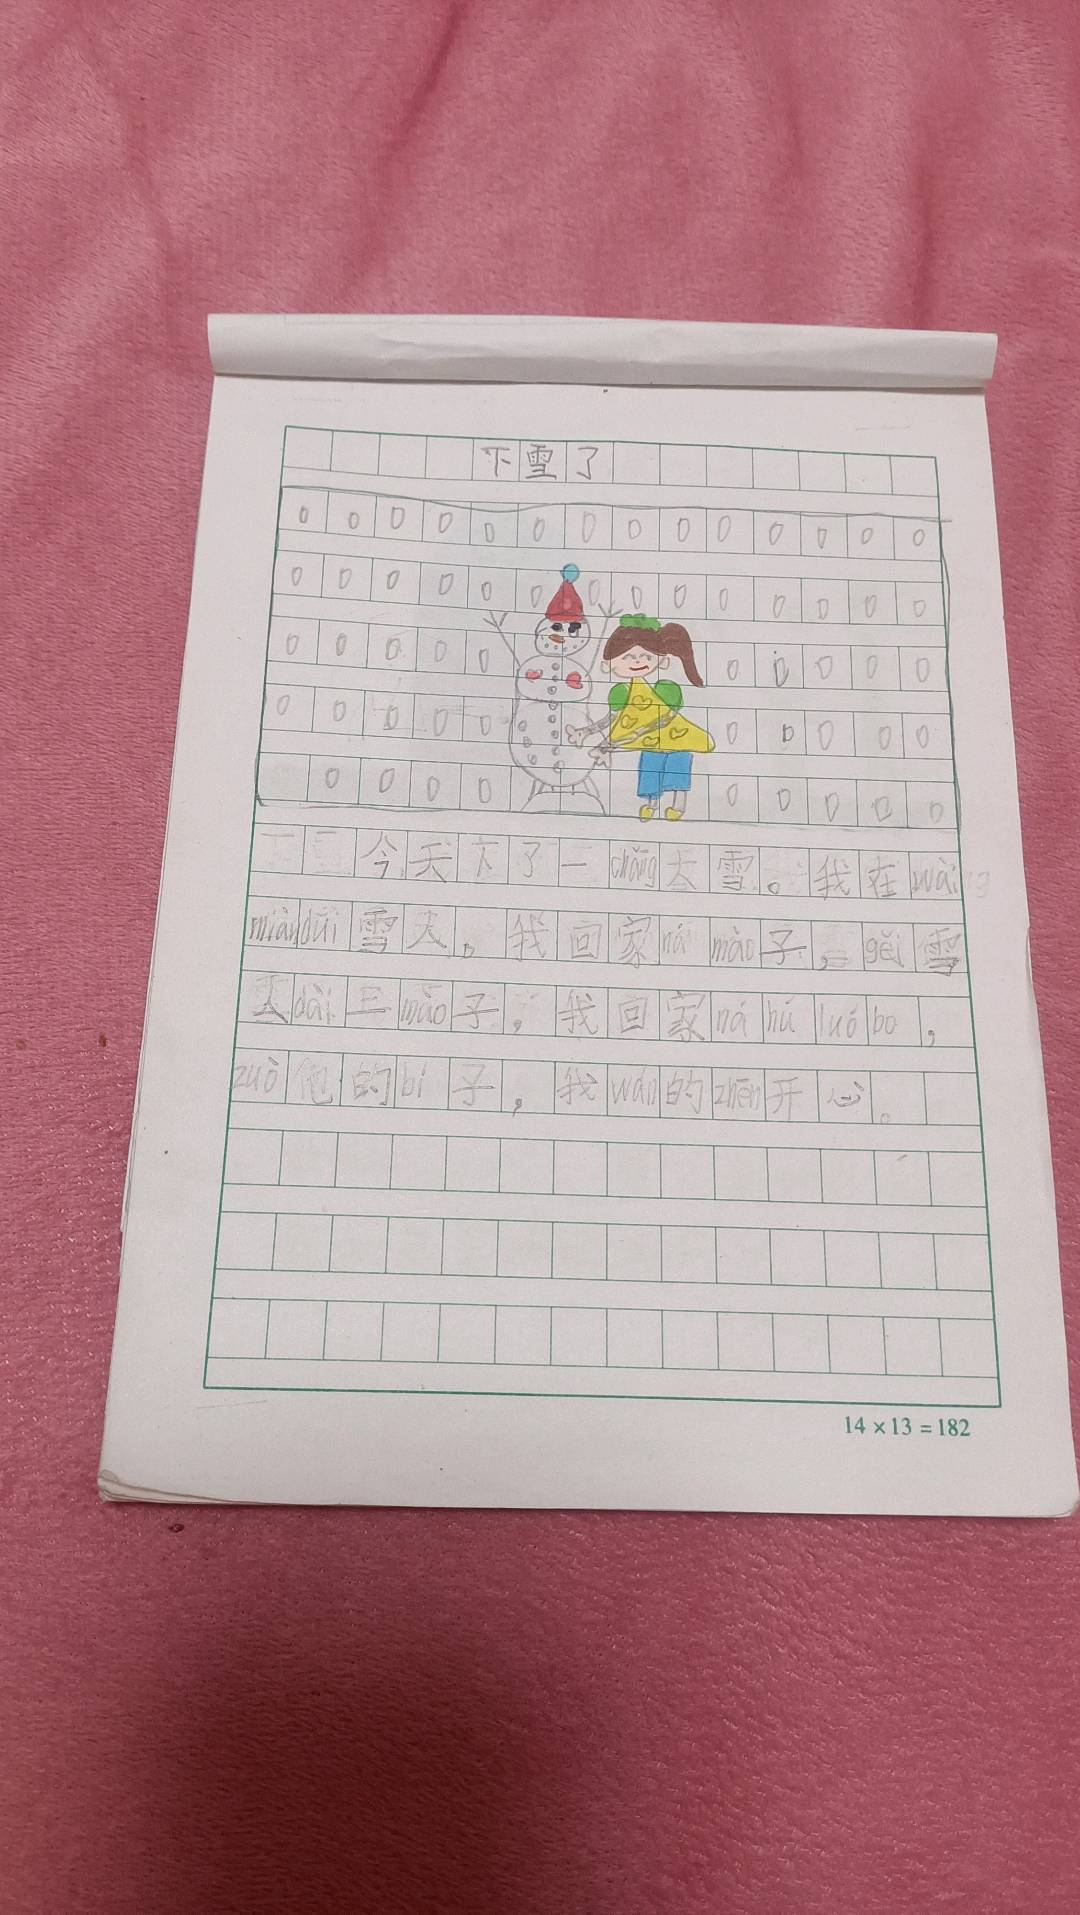 下雪了
今天下了一chǎng大雪。我在wài
miànduī雪人。我回家ná mào子，gěi雪
人dài三mǎo子，我回家ná hú luó bo，
zuò他的bí子，我wán的zhēn开心。
14×13=182